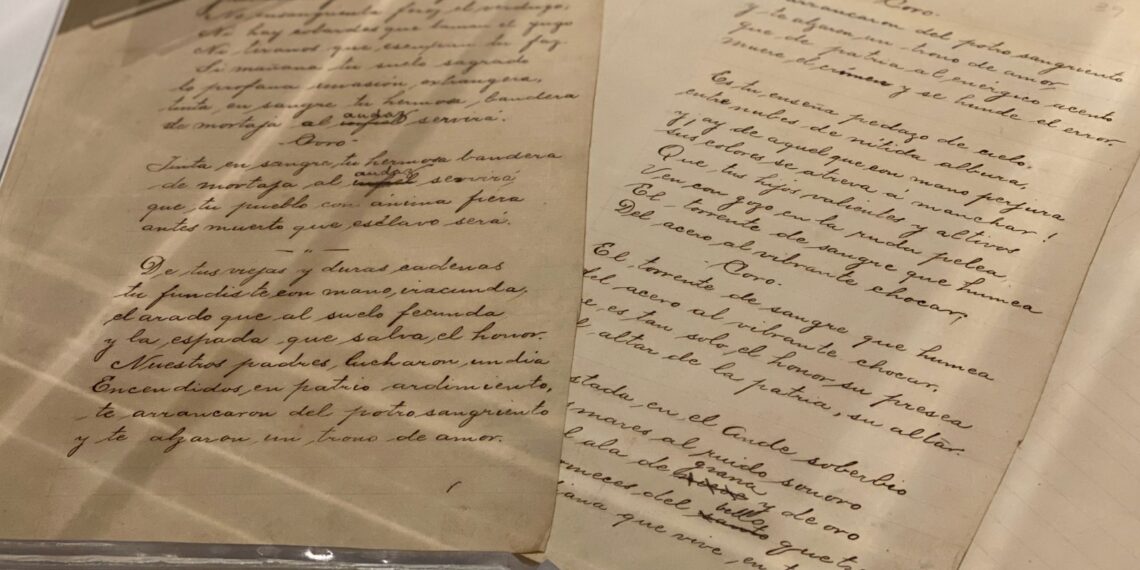 No ensangriente feroz el verdugo,
Ni hay cobardes que laman el yugo
Ni tiranos que escupan tu faz
Si mañana tu suelo sagrado
lo profana invasión extrangera,
tinta en sangre tu hermosa bandera
audaz
de mortaja al servirá.
Coro
Tinta en sangre tu hermosa bandera
audaz
de mortaja al servirá,
que tu pueblo con ánima fiera
antes muerto que esclavo será.
De tus viejas y duras cadenas
tu fundiste con mano iracunda,
el arado que al suelo fecunda
y la espada que salva el honor.
Nuestros padres lucharon un día
Encendidos en patrio ardimiento,
te arrancaron del potro sangriento
y te alzaron un trono de amor.
39
Coro.
arrancaron del potro sangriento
y te alzaron un trono de amor,
que de patria al enérgico acento
muere el crimen y se hunde el error.
Es tu enseña pedazo de cielo,
entre nubes de nítida albura,
y ¡ay de aquel que con mano perjura
sus colores se atreva á manchar!
Que tus hijos valientes y altivos
Ven con gozo en la ruda pelea
El torrente de sangre que humea
Del acero al vibrante chocar,
Coro.
El torrente de sangre que humea
del acero al vibrante chocar,
es tan solo el honor su presea
altar de la patria, su altar.
stada en el Ande soberbio
mares al ruido sonoro
grana
l ala de y de oro
bello
rmeces del
ana que vive, en